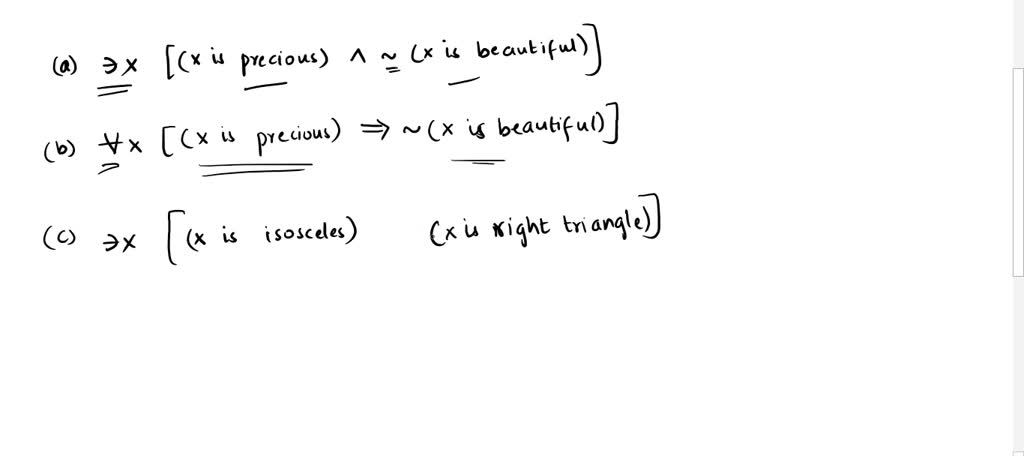 (a) ∃x [(x is precious) ∧ ~ (x is beautiful)]
(b) ∀x [(x is precious) ⇒ ~(x is beautiful)]
(c) ∃x [(x is isosceles) (x is right triangle)]